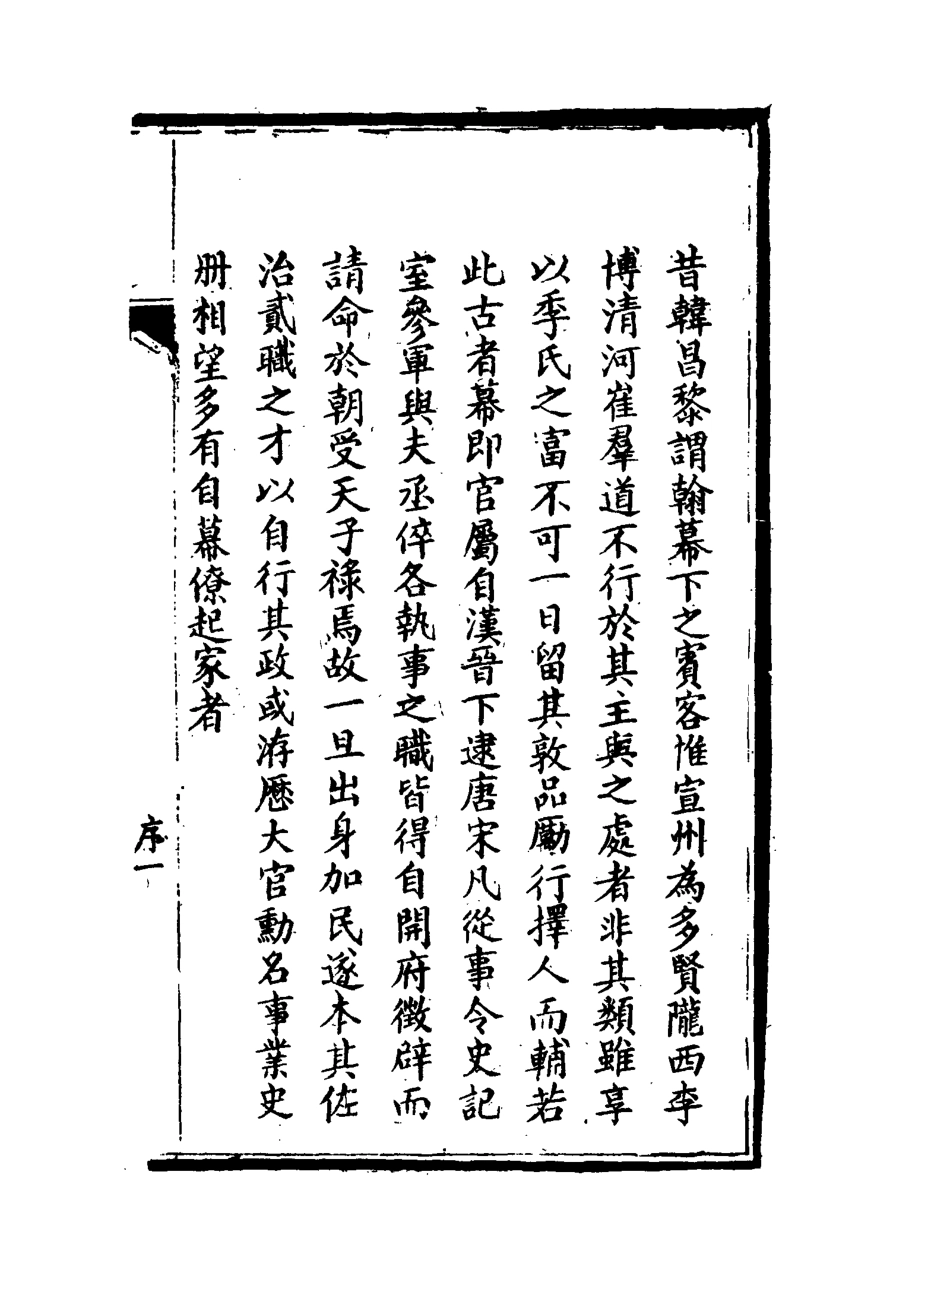 昔韓昌黎謂翰幕下之賓客惟宣州為多賢隴西李
博清河崔羣道不行於其主與之處者非其類雖享
以季氏之富不可一日留其敦品勵行擇人而輔若
此古者幕即官屬自漢晉下逮唐宋凡從事令史記
室參軍與夫丞倅各執事之職皆得自開府徵辟而
請命於朝受天子祿焉故一旦出身加民遂本其佐
治貳職之才以自行其政或洊歷大官勳名事業史
冊相望多有自幕僚起家者
序一